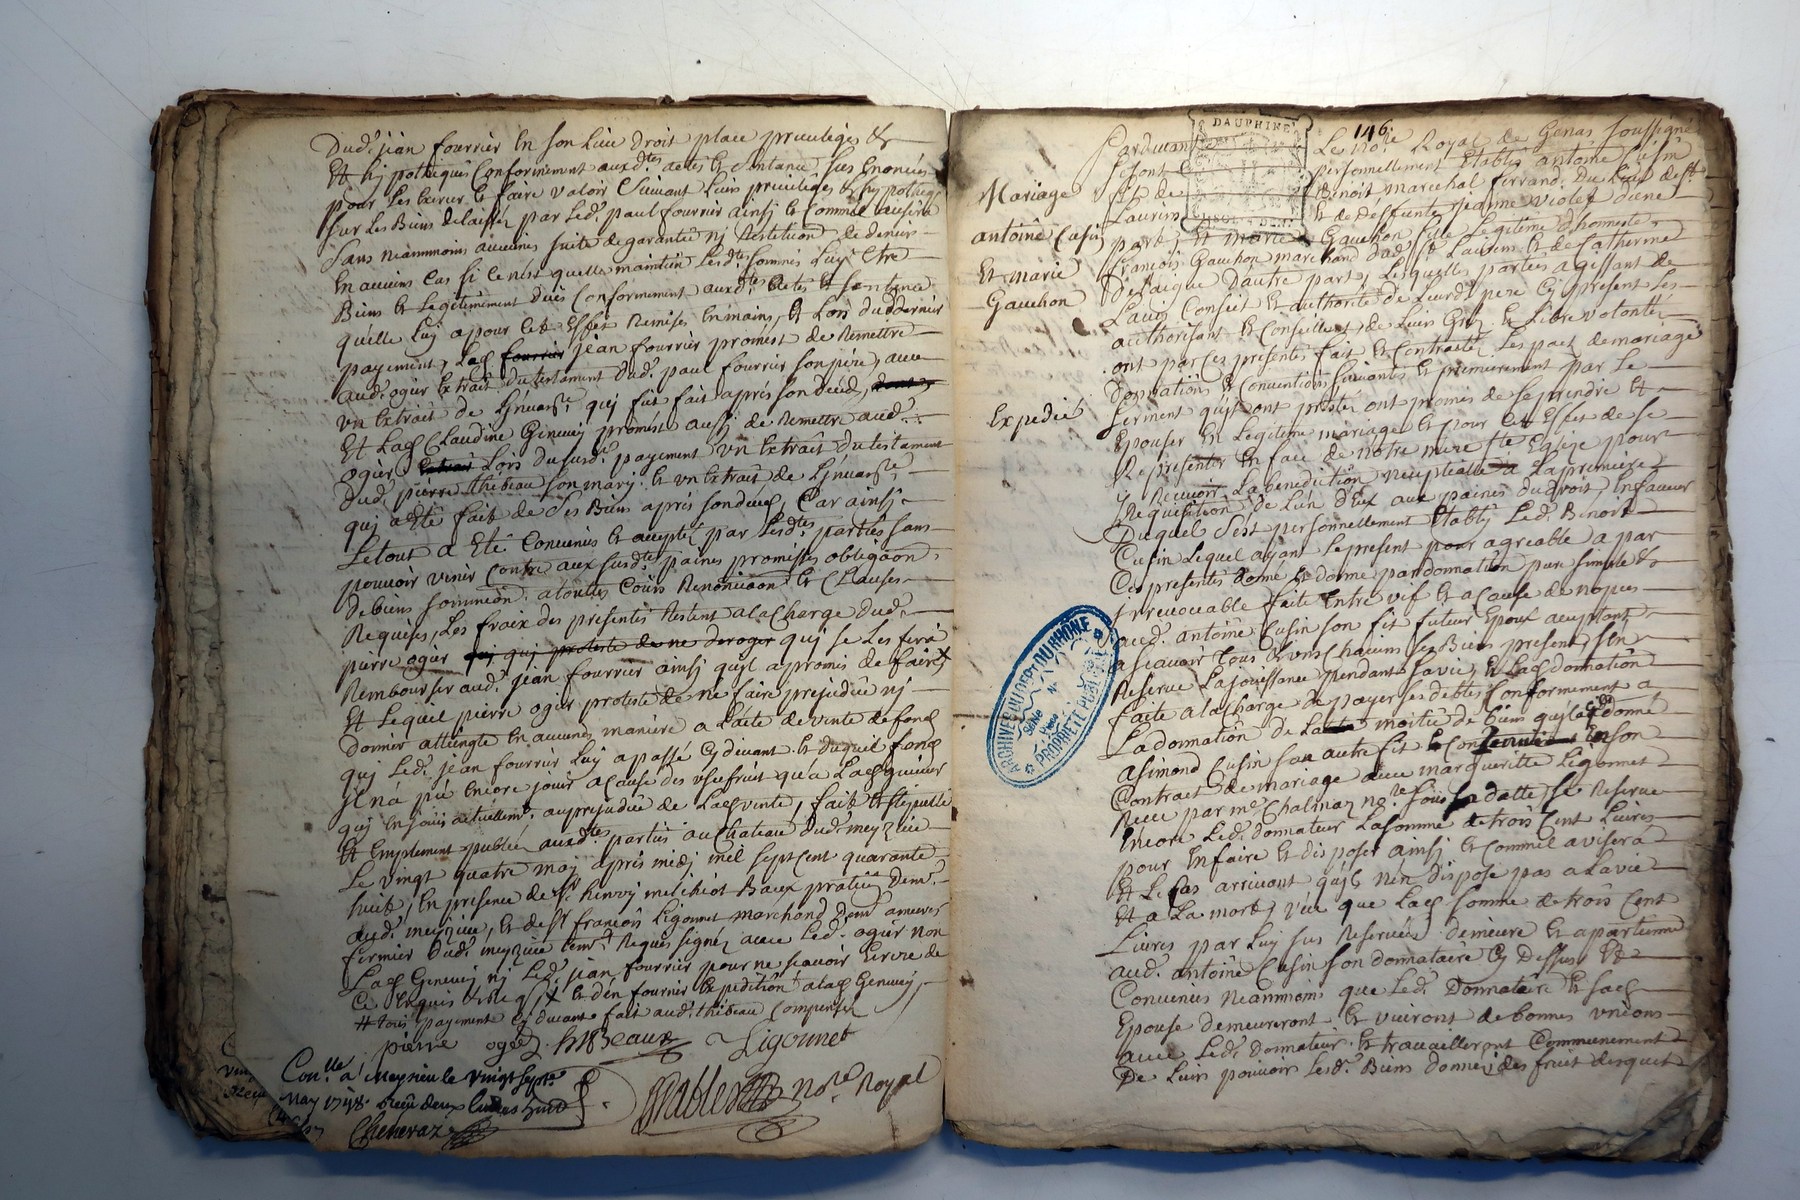 Dud. jean fourrier En son Lieu droit place privileges &
Et hypotheques Conformement auxd.tes actes Et Sentence Sus Enoncés
pour Les Exercer Et faire valoir Suivant Leurs privileges & hypoteqs
Sur Les Biens delaissés par Led. paul fourrier ainsi Et Comme avisera
Sans neanmoins aucunes Suite de garantie nj Restitution de deniers
En aucuns cas Si ce nest quelle maintien Lesd.tes Sommes Luy Etre
Biens Et Legitimement dues Conformement auxd.tes actes Et Sentence
quelle Luy a pour Cet Effet Remises En mains, Et Lors dud dernier
payement, Led fourrier jean fourrier promest de Remettre
aud. ogier Extrait du testament dud. paul fourrier Son pere, avec
vn Extrait de quj fut fait aprés Son deced,
Et Lad Claudine Genevey promest ausj de Remettre aud.
ogier Extrait Lors du Susd. payement vn Extrait du testament
Dud. pierre thibeau Son mary, Et vn Extrait de
quj a Eté fait de Ses Biens aprés Son deced, Car ainsj
Le tout a Eté Convenus Et accepté par Lesd.tes parties Sans
pouvoir venir Contre aux Susd.tes paines promesses obligaon
de biens Soumission a toutes Cours Renonciaon Et Clauses
Requises, Les fraix des presentes Restent a la Charge dud.
pierre ogier quj proteste de ne deroger quj Se Les fera
Rembourser aud. jean fourrier ainsj quil a promis de faire
Et Lequel pierre ogier proteste de ne faire prejudice nj
donner atteinte En aucunes maniere a Lacte de vente de fond
quj Led. jean fourrier Luy a passé Cy divant Et duquel fond
jl na pû Encore jouir a Cause des vsufruit qua Lad
quj En jouis actuellem. au prejudice de Lad vente, fait Et Stipullé
Et Emplement publié auxd.tes parties au Chateau dud. meyzieu
Le vingt quatre may aprés midj mil Sept Cent quarante
huit, En presence de S.r henry melchiot Baux praticien dem.
aud. meyzieu, Et de S.r francois Ligonnet marchand dem
fermier dud. meyzieu tem. Requis Signéz avec Led. ogier non
Lad Genevey nj Led. jean fourrier pour ne Scavoir Ecrire de
Ce Enquis Et Req. Et den fournir Expedition a lad Genevey
payement Cy devant fait aud. thibeau
pierre ogier. hMBeaux Ligonnet
Con.lle a Meyzieu le vingt Sept
May 1748. Receu deux livres
Cheneraz
no.re Royal
146
DAUPHINÉ
Mariage
antoine Cusin
Et marie
Gauchon
Expedié
Pardevant Le No.re Royal de Genas Soussigné
Se Sont personnellement Etablis antoine Cusin
fils de Benoit marechal ferrand, du Lieu de St
Laurin Et de deffunte jeanne violet dune
part, Et marie Gauchon fille Legitime dhonneste
francois Gauchon marchand dud St Laurin Et de Catherine
Delaigue Dautre part, Lesquelles parties agissant de
Lavis Conseil Et authorité de Leurd. pere Cy present Les
authorisant Et Conseillant, de Leurs Gré Et Libre volonté
ont par Cez presentes fait Et Contracté Les pact de mariage
Donnations Et Conventions Suivantes Et premierement par Le
Serment quils ont prestéz ont promis de Se prendre Et
Epouser En Legitime mariage Et pour Cet Effet de Se
Representer En face de notre mere S.te Eglize pour
y Recevoir La benediction neuptialle a La premiere
Requisition de Lun dEux aux paines du droit, En faveur
Duquel Sest personnellement Etablj Led. Benoit
Cusin Lequel ayant Le present pour agreable a par
Ces presentes donné Et donne par donnation pure Simple &
Irrevocable faite Entre vif Et a Cause de nopces
aud. antoine Cusin Son fil futeur Epoux acceptant
a Scavoir tous Et vns Chacuns Ses Biens presents
Reserve La jouissance pendant Sa vie, Et Lad donnation
faite a la Charge de payer Ses debtes Conformement a
La donnation de La moitié de biens quil a donné
a Simond Cusin Son autre fil En Son
Contract de mariage avec margueritte Ligonnet
Receu par m.e Chalmaz no.re Sous Sa datte, Se Reserve
Encore Led. donnateur La Somme de trois Cent Livres
pour En faire Et disposer ainsj Et Comme avisera
Et Le Cas arrivant quil nen dispose pas a La vie
Et a La mort, veu que Lad Somme de trois Cent
Livres par Luy Sus Reservée demeure Et apartienne
aud. antoine Cusin Son donnataire Cy Dessus, Et
Convenus neanmoins que Led. Donnataire Et Sad
Epouse demeureront Et vivront de bonnes vnions
avec Led. Donnateur Et travailleront Communement
De Leurs pouvoir Lesd. Biens donné, des fruit desquels
ARCHIVES DU DÉPT DU RHONE
Série
N°
PROPRIÉTÉ PUBLIQUE